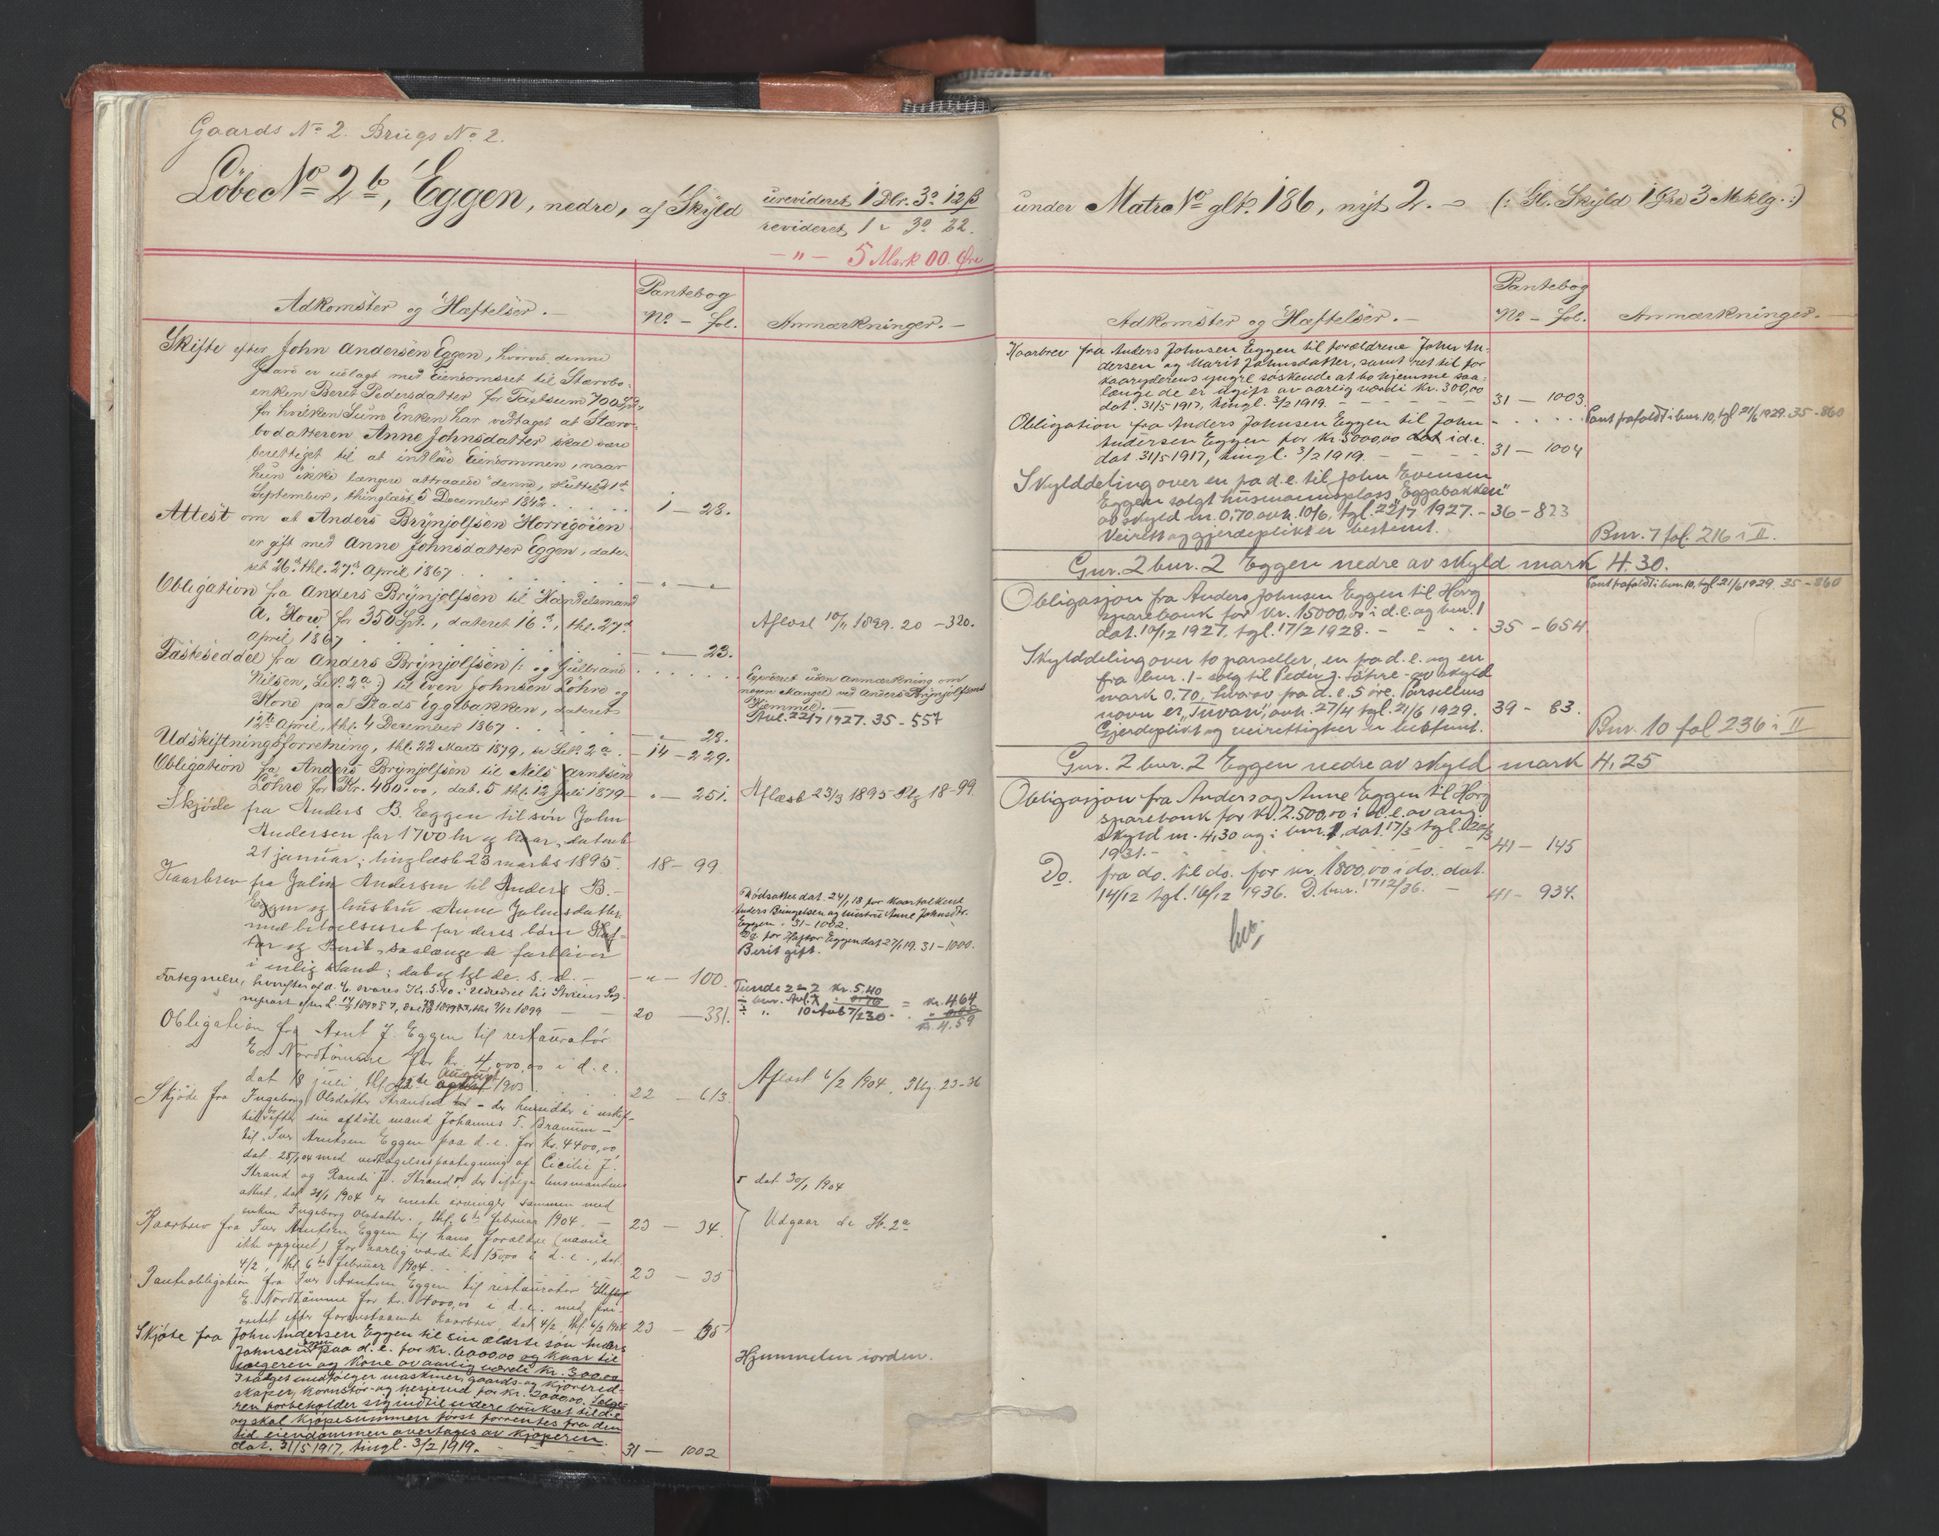 Gaards No 2. Brugs No 2.
Löbe No 2b, Eggen, nedre, af Skyld urevideret 1 Dlr. 3 o 12 ß
revideret 1 " 3 o 22.
— " — 5 Mark 00 Øre
Adkomster og Hæftelser. —
Pantebog
No. — fol.
Anmærkninger. —
Skifte efter John Andersen Eggen, hvorved denne
Gaard er udlagt med Eiendomsret til Stervbo-
enken Beret Pedersdatter for Taxtsum 700 Spd,
for hvilken Sum Enken har vedtaget at Stervbo-
bodatteren Anne Johnsdatter skal være
berettiget til at indløse Eiendommen, naar
hun ikke længere attraaede denne, sluttet 1st
September, thinglæst 5 December 1842. . . . . 1 — 28.
Attest om at Anders Brynjolfsen Horrigøien
er gift med Anne Johnsdatter Eggen, date-
ret 26de, thl. 27de April 1867 . . . . . — " — "
Obligation fra Anders Brynjolfsen til Handelsmand
A. How for 350 Spd., dateret 16de, thl. 27de
April 1867 . . . . . — " — 23. Aflæst 10/11 1899. 20 — 320.
Fæsteseddel fra Anders Brynjolfsen (: og Gulbrand
Nilsen, Lb. 2a :) til Even Johnsen Löhre og
Kone paa Plads Eggebakken, dateret
12te April, thl. 4 December 1867 . . . — " — 23.
Expederet uden Anmærkning om
nogen Mangel ved Anders Brynjolfsens
Hjemmel. —
Avl. 22/7 1927. 35 - 557
Udskiftningsforretning, thl. 22 Marts 1879, se Lb. 2a . — 14 — 229.
Obligation fra Anders Brynjolfsen til Nils Arntsen
Löhre for Kr. 400,00, dat. 5 thl. 12 Juli 1879 — " — 251. Aflæst 23/3 1895 Pbg 18-99
Skjøde fra Anders B. Eggen til søn John
Andersen for 1700 kr og kaar, dateret
21 januar, tinglæst 23 marts 1895. 18 — 99.
Kaarbrev fra John Andersen til Anders B. —
Eggen og hustru Anne Johnsdatter
med beboelsesret for deres børn Haf-
tor og Berit, saalænge de forbliver
i enlig stand; dat og tgl de. s. d. — — " — 100.
Dødsattest dat. 24/1 18 for kaartakent
Anders Bryngelsen og hustru Anne Johnsdtr.
Eggen. 31 - 1002.
Do. for Haftor Eggen dat 27/1 19. 31-1000.
Berit gift.
Fortegnelse, hvorefter af d. E. svares Kr. 5.40 i
20 — 331.
Tiende 2-2 kr. 5.40
÷ bnr. = kr. 4.64
kr. 4.59
Obligation fra Arnt J. Eggen til restauratør
E. Nordtømme for kr. 4,000,00 i d. e.
dat 18 juli, thl. 22de august 1903 . . . 22 — 613. Aflæst 6/2 1904, Pbg. 23-36
Skjøde fra Ingeborg Olsdatter Strand — der hensidder i uskif-
tet bo efter sin afdøde mand Johannes T. Bramm —
til Iver Arntsen Eggen paa d. e. for kr. 4400,00,
dat. 25/1 04 med vedtagelsespaategning af Cicilie J.
Strand og Randi J. Strand, der ifølge lensmandens
attest, dat 30/1 1904 er eneste arvinger sammen med
enken Ingeborg Olsdatter, thl. 6te februar 1904. — 23 — 34.
r dat 30/1 1904
Udgaar se Lb. 2a
Kaarbrev fra Iver Arntsen Eggen til hans forældre (navne
ikke opgivet) for aarlig værdi kr 150,00 i d. e., dat.
4/2, thl. 6te februar 1904. . . . . 23 — 35
Panteobligation fra Iver Arntsen Eggen til restauratør Ellef
E. Nordtømme for kr. 4000,00 i d. e. med pri-
oritet efter foranstaaende kaarbrev, dat 4/2, thl. 6/2 1904 23 — 35
Skjøte fra John Andersen Eggen til sin ældste søn Anders
Johnsen Eggen paa d. e. for kr. 6000,00 og kaar til
sælgeren og kone av aarlig værdi kr. 300,00
I salget medfølger maskiner, gaards- og kjørered-
skaper, kornstør- og hesjeved for kr. 2000,00. Sælge-
ren forbeholder sig indtil videre bruket til d. e.
og skal kjøpesummen først forrentes fra den
tid eiendommen overtages av kjøperen.
dat. 31/5 1917, tingl. 3/2 1919. — — 31 — 1002
Hjemmelen iorden.
8
under Matr No glt. 186, nyt 2. — (: Gl. Skyld 1 Øre 3 Mklg. :)
Adkomster og Hæftelser. —
Pantebog
No. — fol.
Anmærkninger. —
Kaarbrev fra Anders Johnsen Eggen til forældrene John An-
dersen og Marit Johnsdatter, samt ret til for
kaaryderens yngre søskende at bo hjemme saa-
længe de er ugift av aarlig værdi kr. 300,00
dat. 31/5 1917, tingl. 3/2 1919. — — — — 31 — 1003.
Obligation fra Anders Johnsen Eggen til John
Andersen Eggen for kr. 5000,00 i d. e.
dat 31/5 1917, tingl. 3/2 1919. — — — 31 — 1004
Pant frafaldt i bnr. 10, tgl 21/6 1929. 35-860
Skylddeling over en fra d. e. til John Evensen
Eggen solgt husmannsplass "Eggabakken"
av skyld m. 0,70 avh. 10/6, tgl. 22/7 1927. - 36 - 823
Veirett og gjerdeplikt er bestemt. Bnr. 7 fol. 216 i II.
Gnr. 2 bnr. 2 Eggen nedre av skyld mark 4.30.
Obligasjon fra Anders Johnsen Eggen til Horg
sparebank for kr. 15000,00 i d. e. og bnr. 1
dat. 10/12 1927, tgl. 17/2 1928. — — — 35 - 654
Pant frafaldt i bnr. 10, tgl 21/6 1929. 35-860
Skylddeling over to parseller, en fra d. e. og en
fra bnr. 1 - solgt til Peder J. Løhre - av skyld
mark 0.70, hvorav fra d. e. 5 øre. Parsellens
navn er "Tuvan", avh. 27/4 tgl. 21/6 1929. 39 - 83.
Gjerdeplikt og veirettigheter er bestemt. Bnr. 10 fol 236 i II
Gnr. 2 bnr. 2 Eggen nedre av skyld mark 4.25
Obligasjon fra Anders og Anne Eggen til Horg
sparebank for kr. 2.500,00 i d. e. av ang.
skyld m. 4,30 og i bnr. 1, dat. 17/3 tgl. 20/3
1931. — — 41 — 145
Do. fra do. til ds. for kr. 1800,00 i do. dat.
14/12 tgl. 16/12 1936. D. bnr. 17 12/36. — 41 - 934.